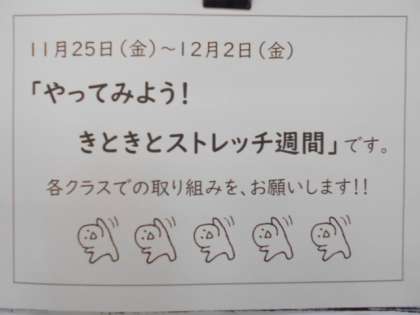 11月25日(金)～12月2日(金)
「やってみよう!
きときとストレッチ週間」です。
各クラスでの取り組みを、お願いします!!